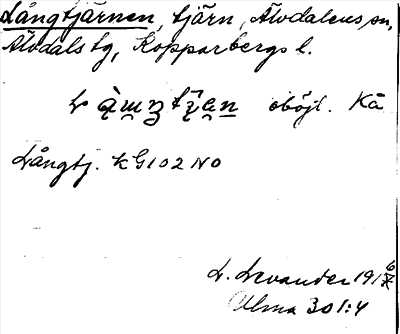 Långtjärnen, tjärn, Älvdalens sn,
Älvdals tg, Kopparbergs l.
oböjl. Kå
Långtj. KG102 NO
L. Levander 191
Ulma 301:4